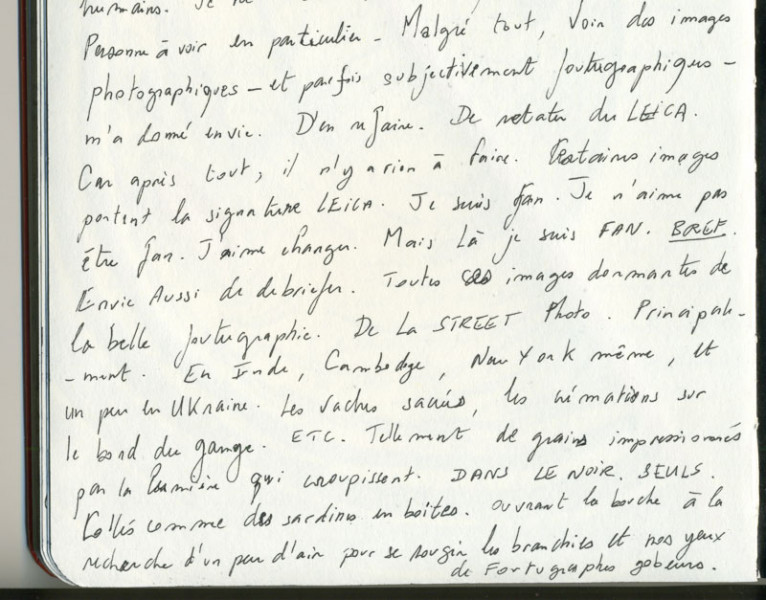 humains. Je
Personne à voir en particulier - Malgré tout, Voir des images
photographiques - et parfois subjectivement foutugraphiques -
m'a donné envie. D'en refaire. De retater du LEICA.
Car après tout, il n'y a rien à faire. Certaines images
portent la signature LEICA. Je suis fan. Je n'aime pas
être fan. J'aime changer. Mais Là je suis FAN. BREF.
Envie Aussi de debriefer. Toutes ces images dormantes de
la belle foutugraphie. De La STREET Photo. Principale-
-ment. En Inde, Cambodge, New York même, et
un peu en UKraine. Les vaches sacrées, les crémations sur
le bord du gange. ETC. Tellement de grains impressionnés
par la lumière qui croupissent. DANS LE NOIR. SEULS.
Collés comme des sardines en boites. ouvrant la bouche à la
recherche d'un peu d'air pour se rougir les branchies et nos yeux
de Fortugraphes gobeurs.